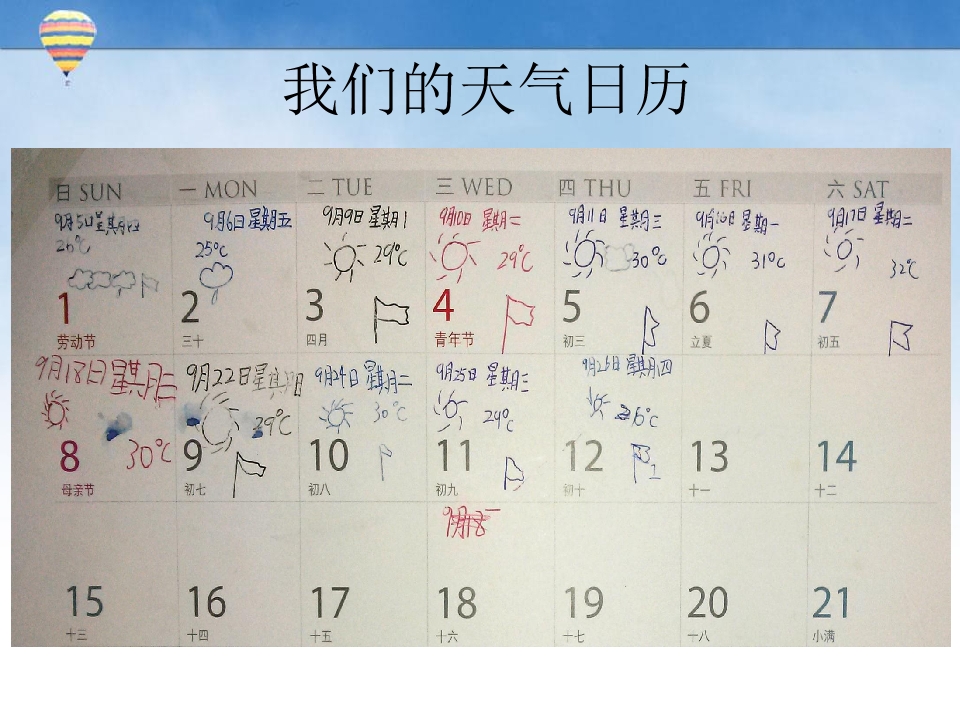 我们的天气日历
日 SUN 一 MON 二 TUE 三 WED 四 THU 五 FRI 六 SAT
9月5日星期四
26℃
1
劳动节
9月6日星期五
25℃
2
三十
9月9日 星期1
29℃
3
四月
9月10日 星期二
29℃
4
青年节
9月11日 星期三
30℃
5
初三
9月16日星期一
31℃
6
立夏
9月17日 星期二
32℃
7
初五
9月18日星期三
30℃
8
母亲节
9月22日星期日
29℃
9
初七
9月24日 星期二
30℃
10
初八
9月25日 星期三
29℃
11
初九
9月26日 星期四
26℃
12
初十
13
十一
14
十二
15
十三
16
十四
17
十五
18
十六
19
十七
20
十八
21
小满